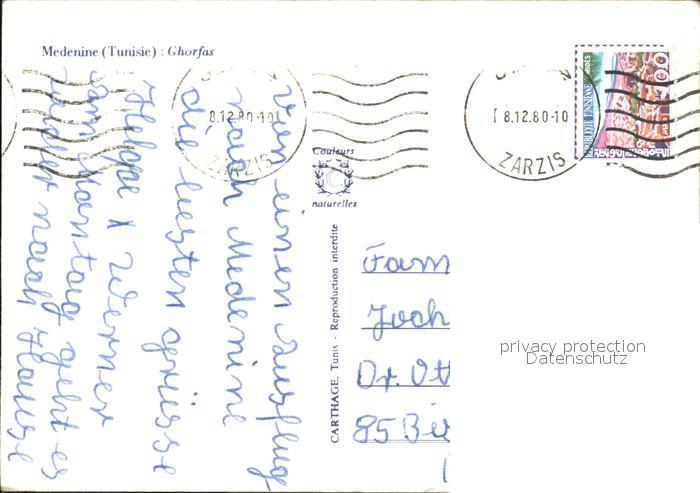 Medenine (Tunisie) : Ghorfas
8.12.80-10
ZARZIS
8.12.80-10
ZARZIS
Couleurs
naturelles
CARTHAGE, Tunis - Reproduction interdite
Von einem Ausflug
nach Medenine
die besten Grüsse
Werner
am Montag geht es
wieder nach Hause
Fam
Joch
Dr. Ott
85
privacy protection
Datenschutz